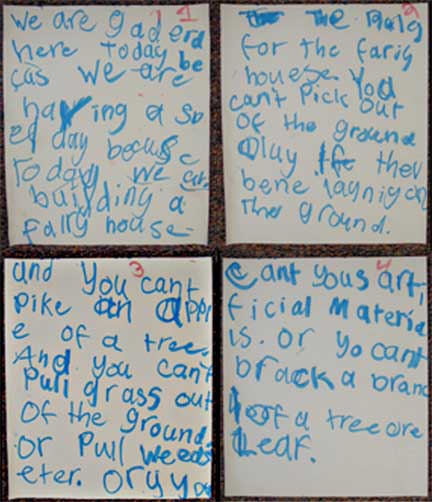 we are gaderd 1
here today be
cus we are
having a sp
el day becus
Today we are
building a
fairy house
2
The Rulg
for the fariy
house. You
can't Pick out
of the ground
Oluy if they
bene laying on
The ground.
3
and you can't
Pike an Appl
e of a tree.
And you can't
Pull grass out
of the ground
or Pull weeds
eter. or y
4
Cant yous arti
ficial Materia
ls. or yo cant
brack a branc
of a tree ore
Leaf.